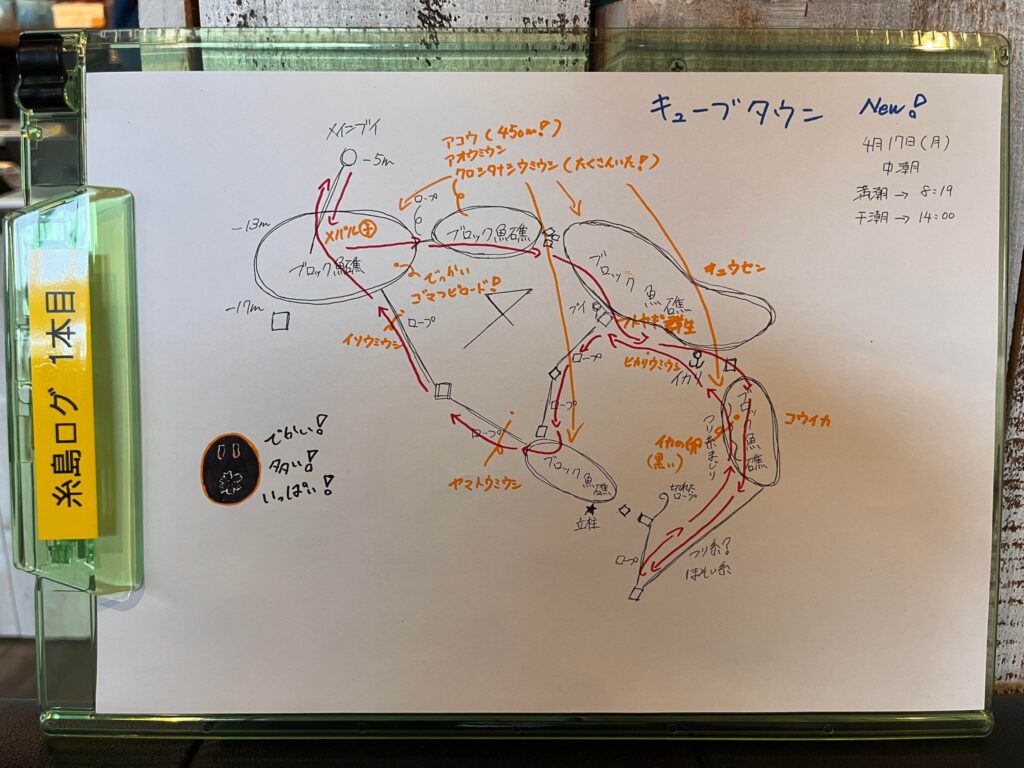 糸島ログ 1本目
キューブタウン New!
4月17日(月)
中潮
満潮→ 8:19
干潮→ 14:00
メインブイ
-5m
アコウ(45cm!)
アオウミウシ
クロシタナシウミウシ(たくさんいた!)
-13m
メバル
ロープ
ブロック魚礁
ブロック魚礁
ブロック魚礁
キュウセン
でっかい
ゴマフビロード!
-17m
ロープ
ブイ
フトヤギ群生
イソウミウシ
ロープ
ヒカリウミウシ
イカリ
ロープ
ブロック魚礁
コウイカ
でかい!
多い!
いっぱい!
ロープ
ヤマトウミウシ
ブロック魚礁
イカの卵
(黒い)
つり糸まじり
切れた
ロープ
立柱
ロープ
つり糸?
ほそい糸